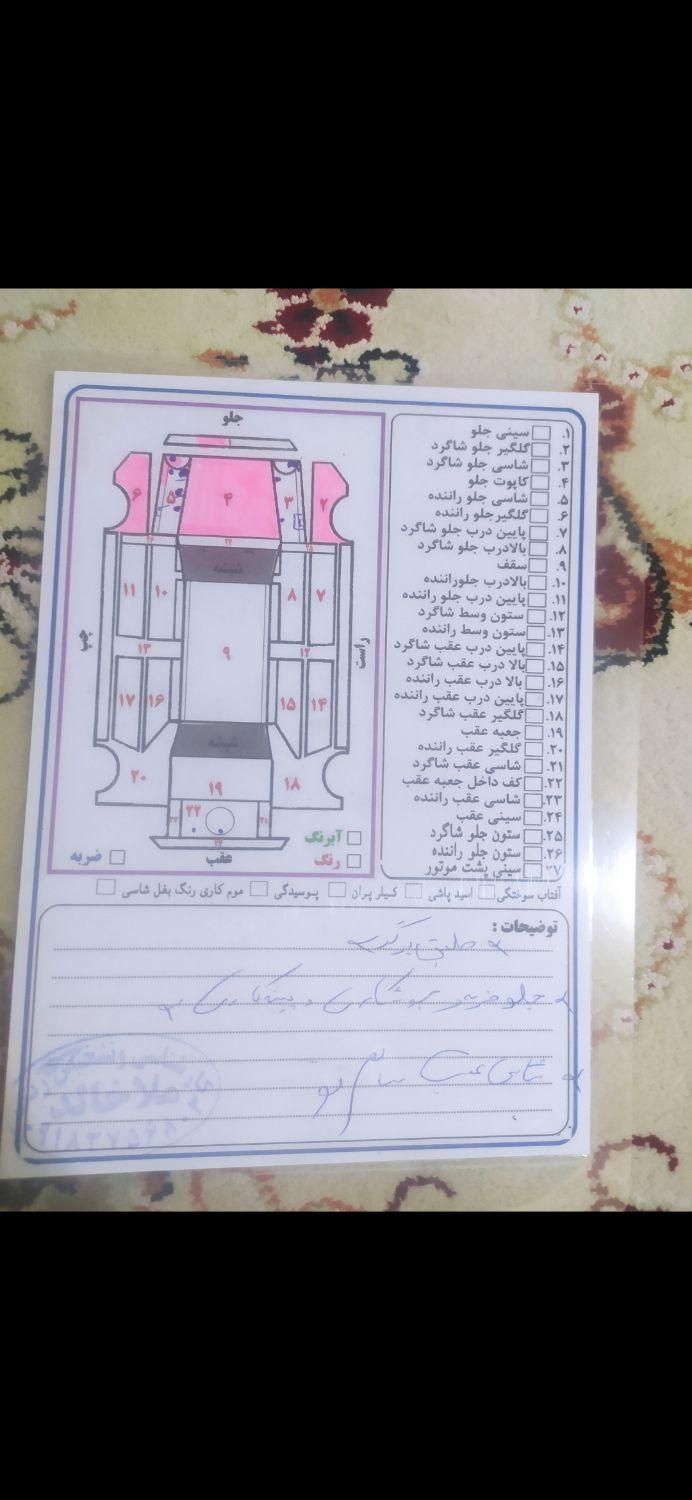 جلو
۱
۲
۳
۴
۵
۶
۲۵
۲۷
۲۶
شیشه
۷
۸
۹
۱۰
۱۱
چپ
راست
۱۲
۱۳
۱۴
۱۵
۱۶
۱۷
شیشه
۱۸
۱۹
۲۰
۲۱
۲۲
۲۳
۲۴
عقب
آبرنگ
رنگ
ضربه
۱. سینی جلو
۲. گلگیر جلو شاگرد
۳. شاسی جلو شاگرد
۴. کاپوت جلو
۵. شاسی جلو راننده
۶. گلگیرجلو راننده
۷. پایین درب جلو شاگرد
۸. بالادرب جلو شاگرد
۹. سقف
۱۰. بالادرب جلوراننده
۱۱. پایین درب جلو راننده
۱۲. ستون وسط شاگرد
۱۳. ستون وسط راننده
۱۴. پایین درب عقب شاگرد
۱۵. بالا درب عقب شاگرد
۱۶. بالا درب عقب راننده
۱۷. پایین درب عقب راننده
۱۸. گلگیر عقب شاگرد
۱۹. جعبه عقب
۲۰. گلگیر عقب راننده
۲۱. شاسی عقب شاگرد
۲۲. کف داخل جعبه عقب
۲۳. شاسی عقب راننده
۲۴. سینی عقب
۲۵. ستون جلو شاگرد
۲۶. ستون جلو راننده
۲۷ سینی پشت موتور
آفتاب سوختگی اسید پاشی کیلر پران پوسیدگی موم کاری رنگ بغل شاسی
توضیحات :
جلو ضربه
شاسی عقب سالم
ملا خالد